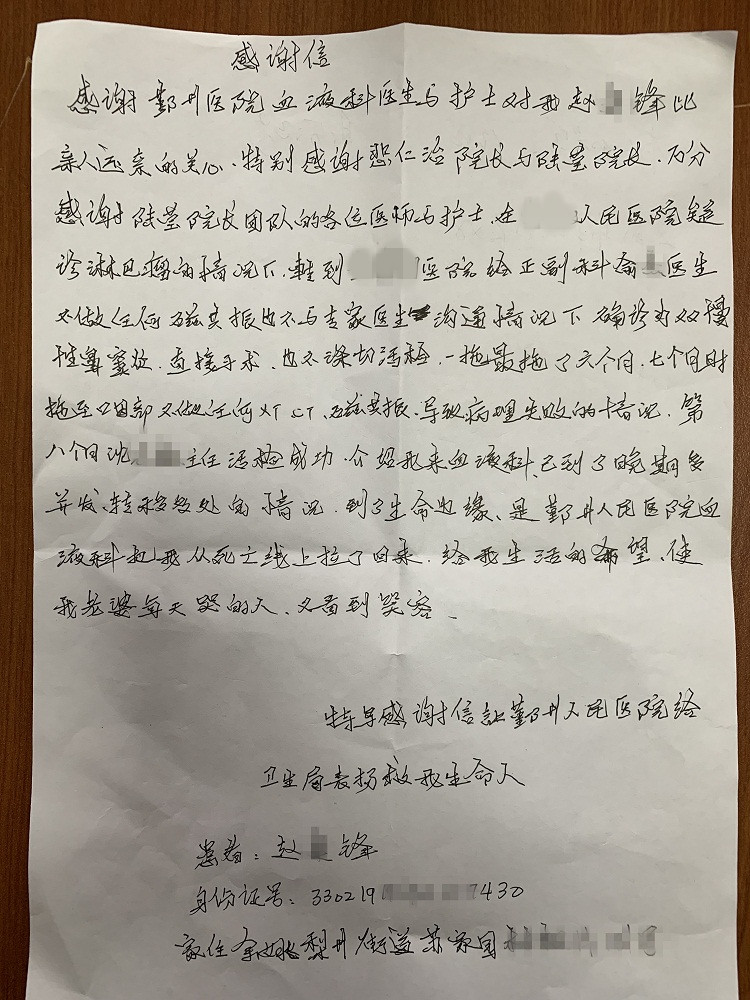 感谢信
感谢鄞州医院血液科医生与护士对我赵 锋比
亲人还亲的关心、特别感谢 仁治院长与陆莹院长、万分
感谢陆莹院长团队的各位医师与护士、在 人民医院疑
诊淋巴瘤的情况下,转到 医院经正副科俞 医生
不做任何磁共振也不与专家医生沟通情况下确诊为双慢
性鼻窦炎、直接手术、也不深切活检、一拖最拖了六个月、七个月时
拖至口因部又做任何XT CT、磁共振、导致病理失败的情况、第
八个月沈 主任活检成功、介绍我来血液科、已到了晚期多
并发、转移多处的情况、到了生命边缘、是鄞州人民医院血
液科把我从死亡线上拉了回来、给我生活的希望、使
我老婆每天哭的人、又看到笑容、
特写感谢信让鄞州人民医院给
卫生局表扬救我生命人
患者:赵 锋
身份证号:330219 7430
家住余姚梨州街道苏家园